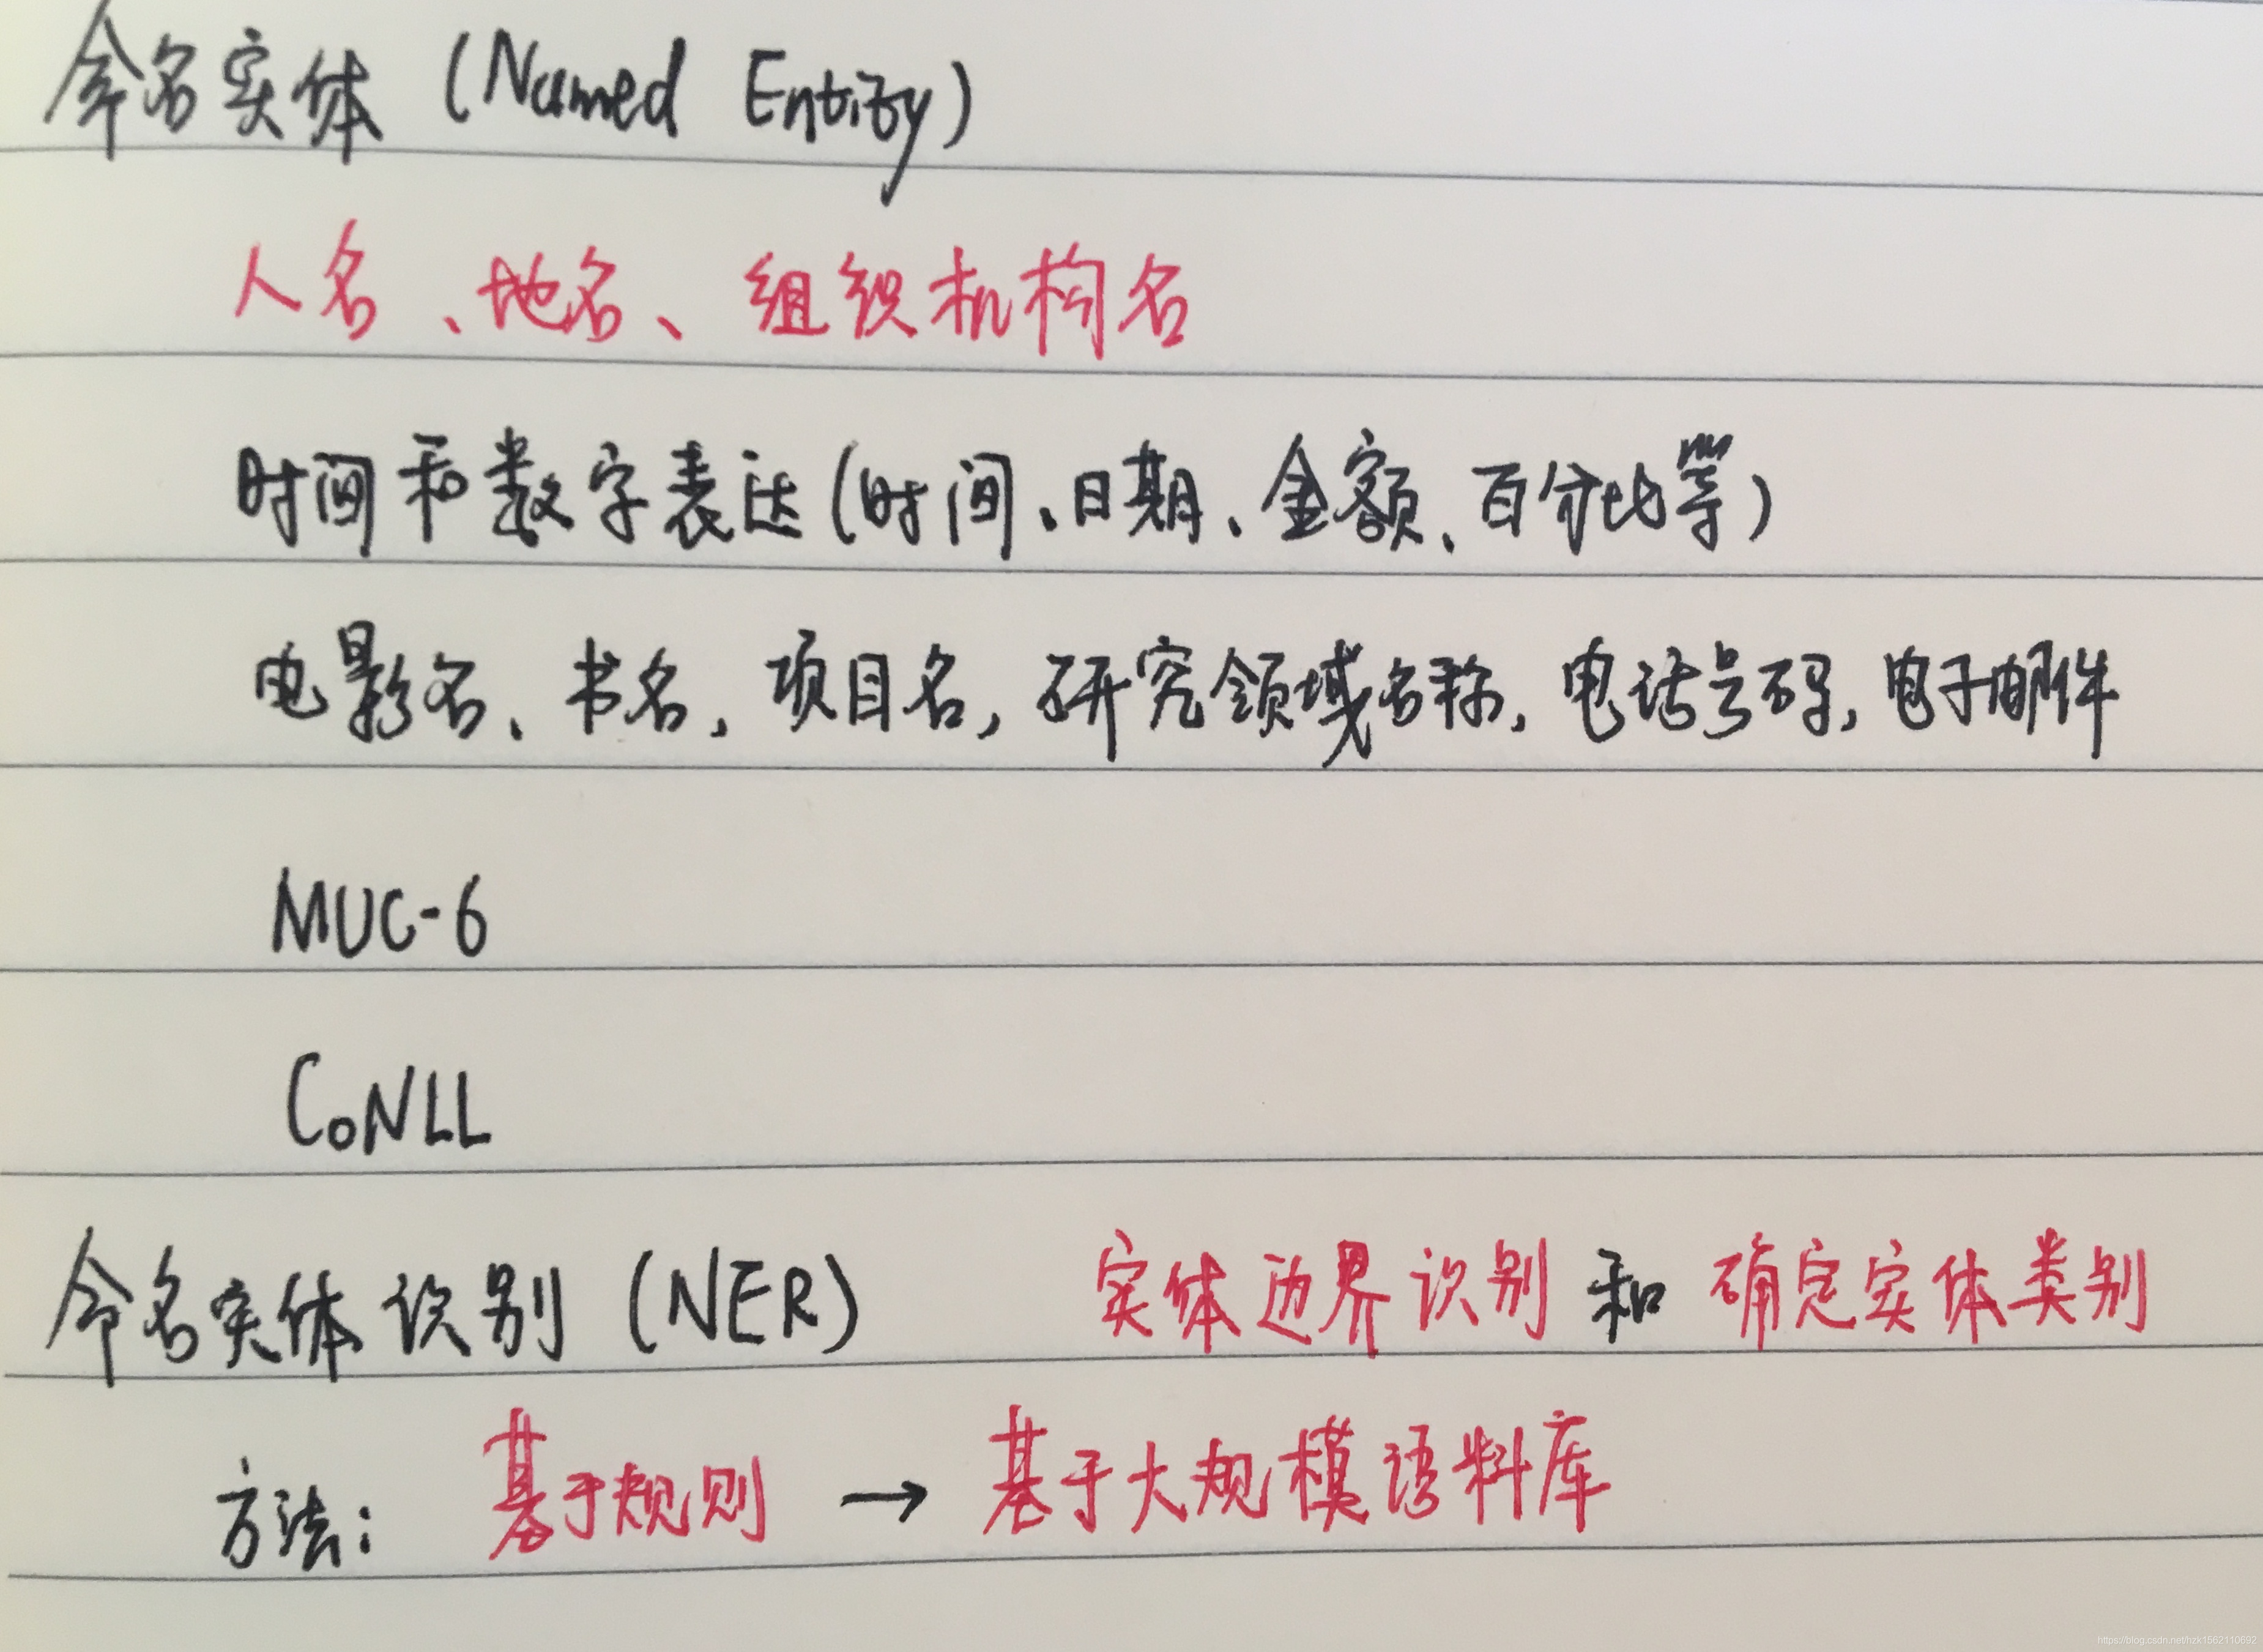 命名实体 (Named Entity)
人名、地名、组织机构名
时间和数字表达(时间、日期、金额、百分比等)
电影名、书名, 项目名, 研究领域名称, 电话号码, 电子邮件
MUC-6
CoNLL
命名实体识别 (NER) 实体边界识别 和 确定实体类别
方法: 基于规则 → 基于大规模语料库
https://blog.csdn.net/hzk1562110692